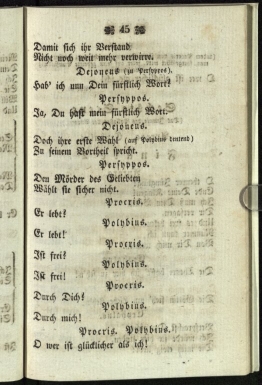 45
Damit sich ihr Verstand
Nicht noch weit mehr verwirre.
Dejoneus (zu Persyppos).
Hab' ich nun Dein fürstlich Wort?
Persyppos.
Ja, Du hast mein fürstlich Wort.
Dejoneus.
Doch ihre erste Wahl (auf Polybius deutend)
Zu seinem Vortheil spricht.
Persyppos.
Den Mörder des Geliebten
Wählt sie sicher nicht.
Procris.
Er lebt!
Polybius.
Er lebt!
Procris.
Ist frei!
Polybius.
Ist frei!
Procris.
Durch Dich!
Polybius.
Durch mich!
Procris. Polybius.
O wer ist glücklicher als ich!